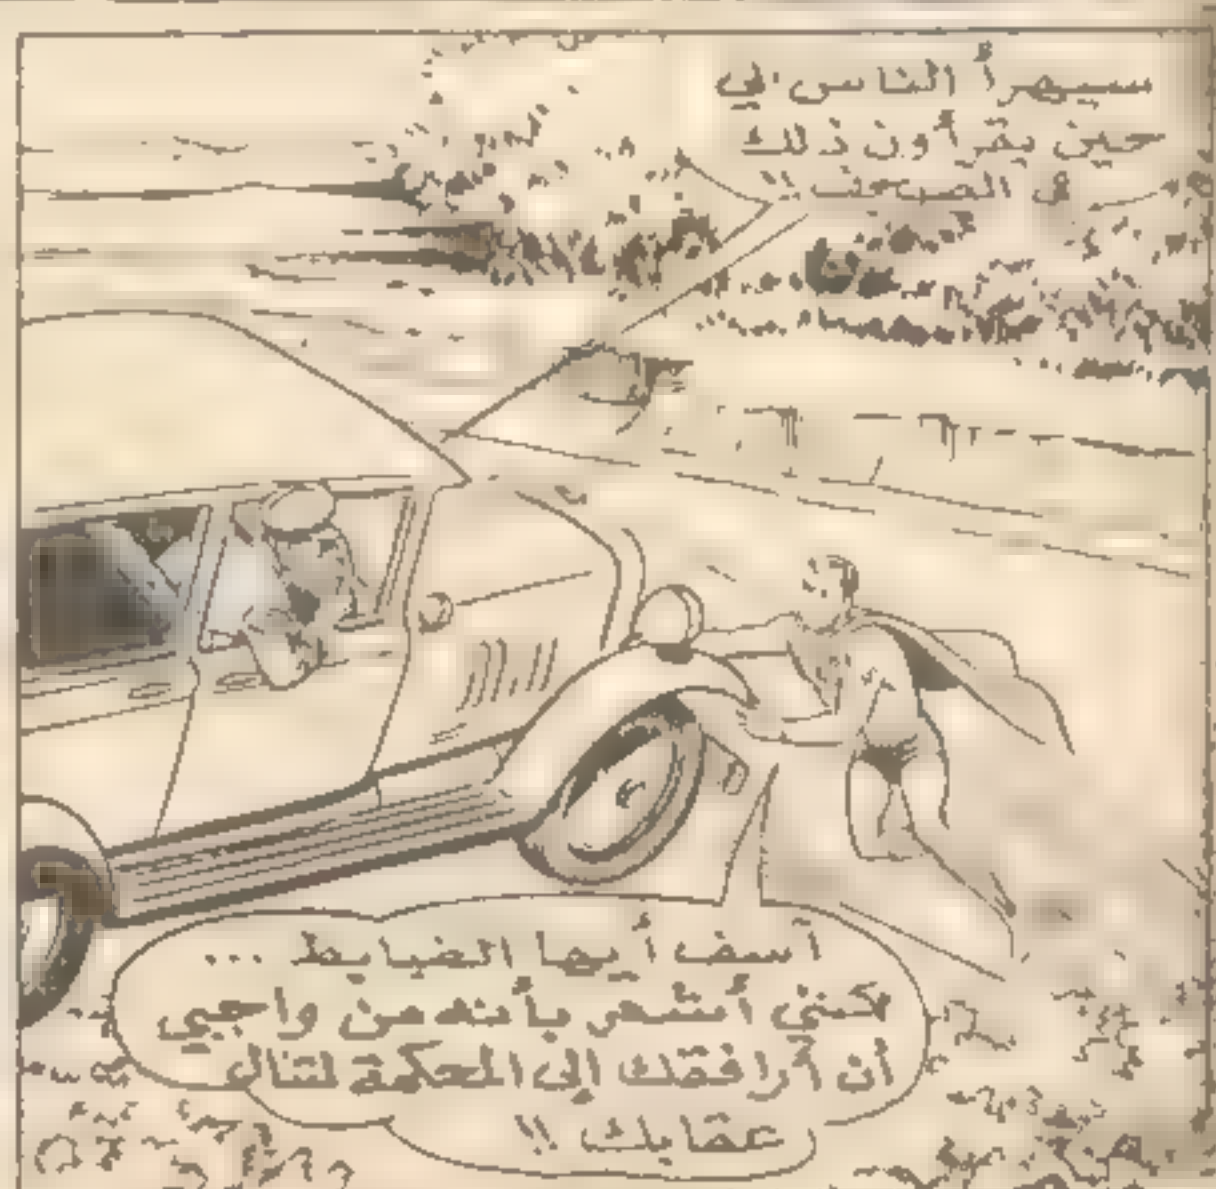 سيهزأ الناس بي
حين يقرأون ذلك
في الصحف !!
آسف أيها الضابط ...
لكنني أشعر بأنه من واجبي
أن أرافقك إلى المحكمة لتنال
عقابك !!